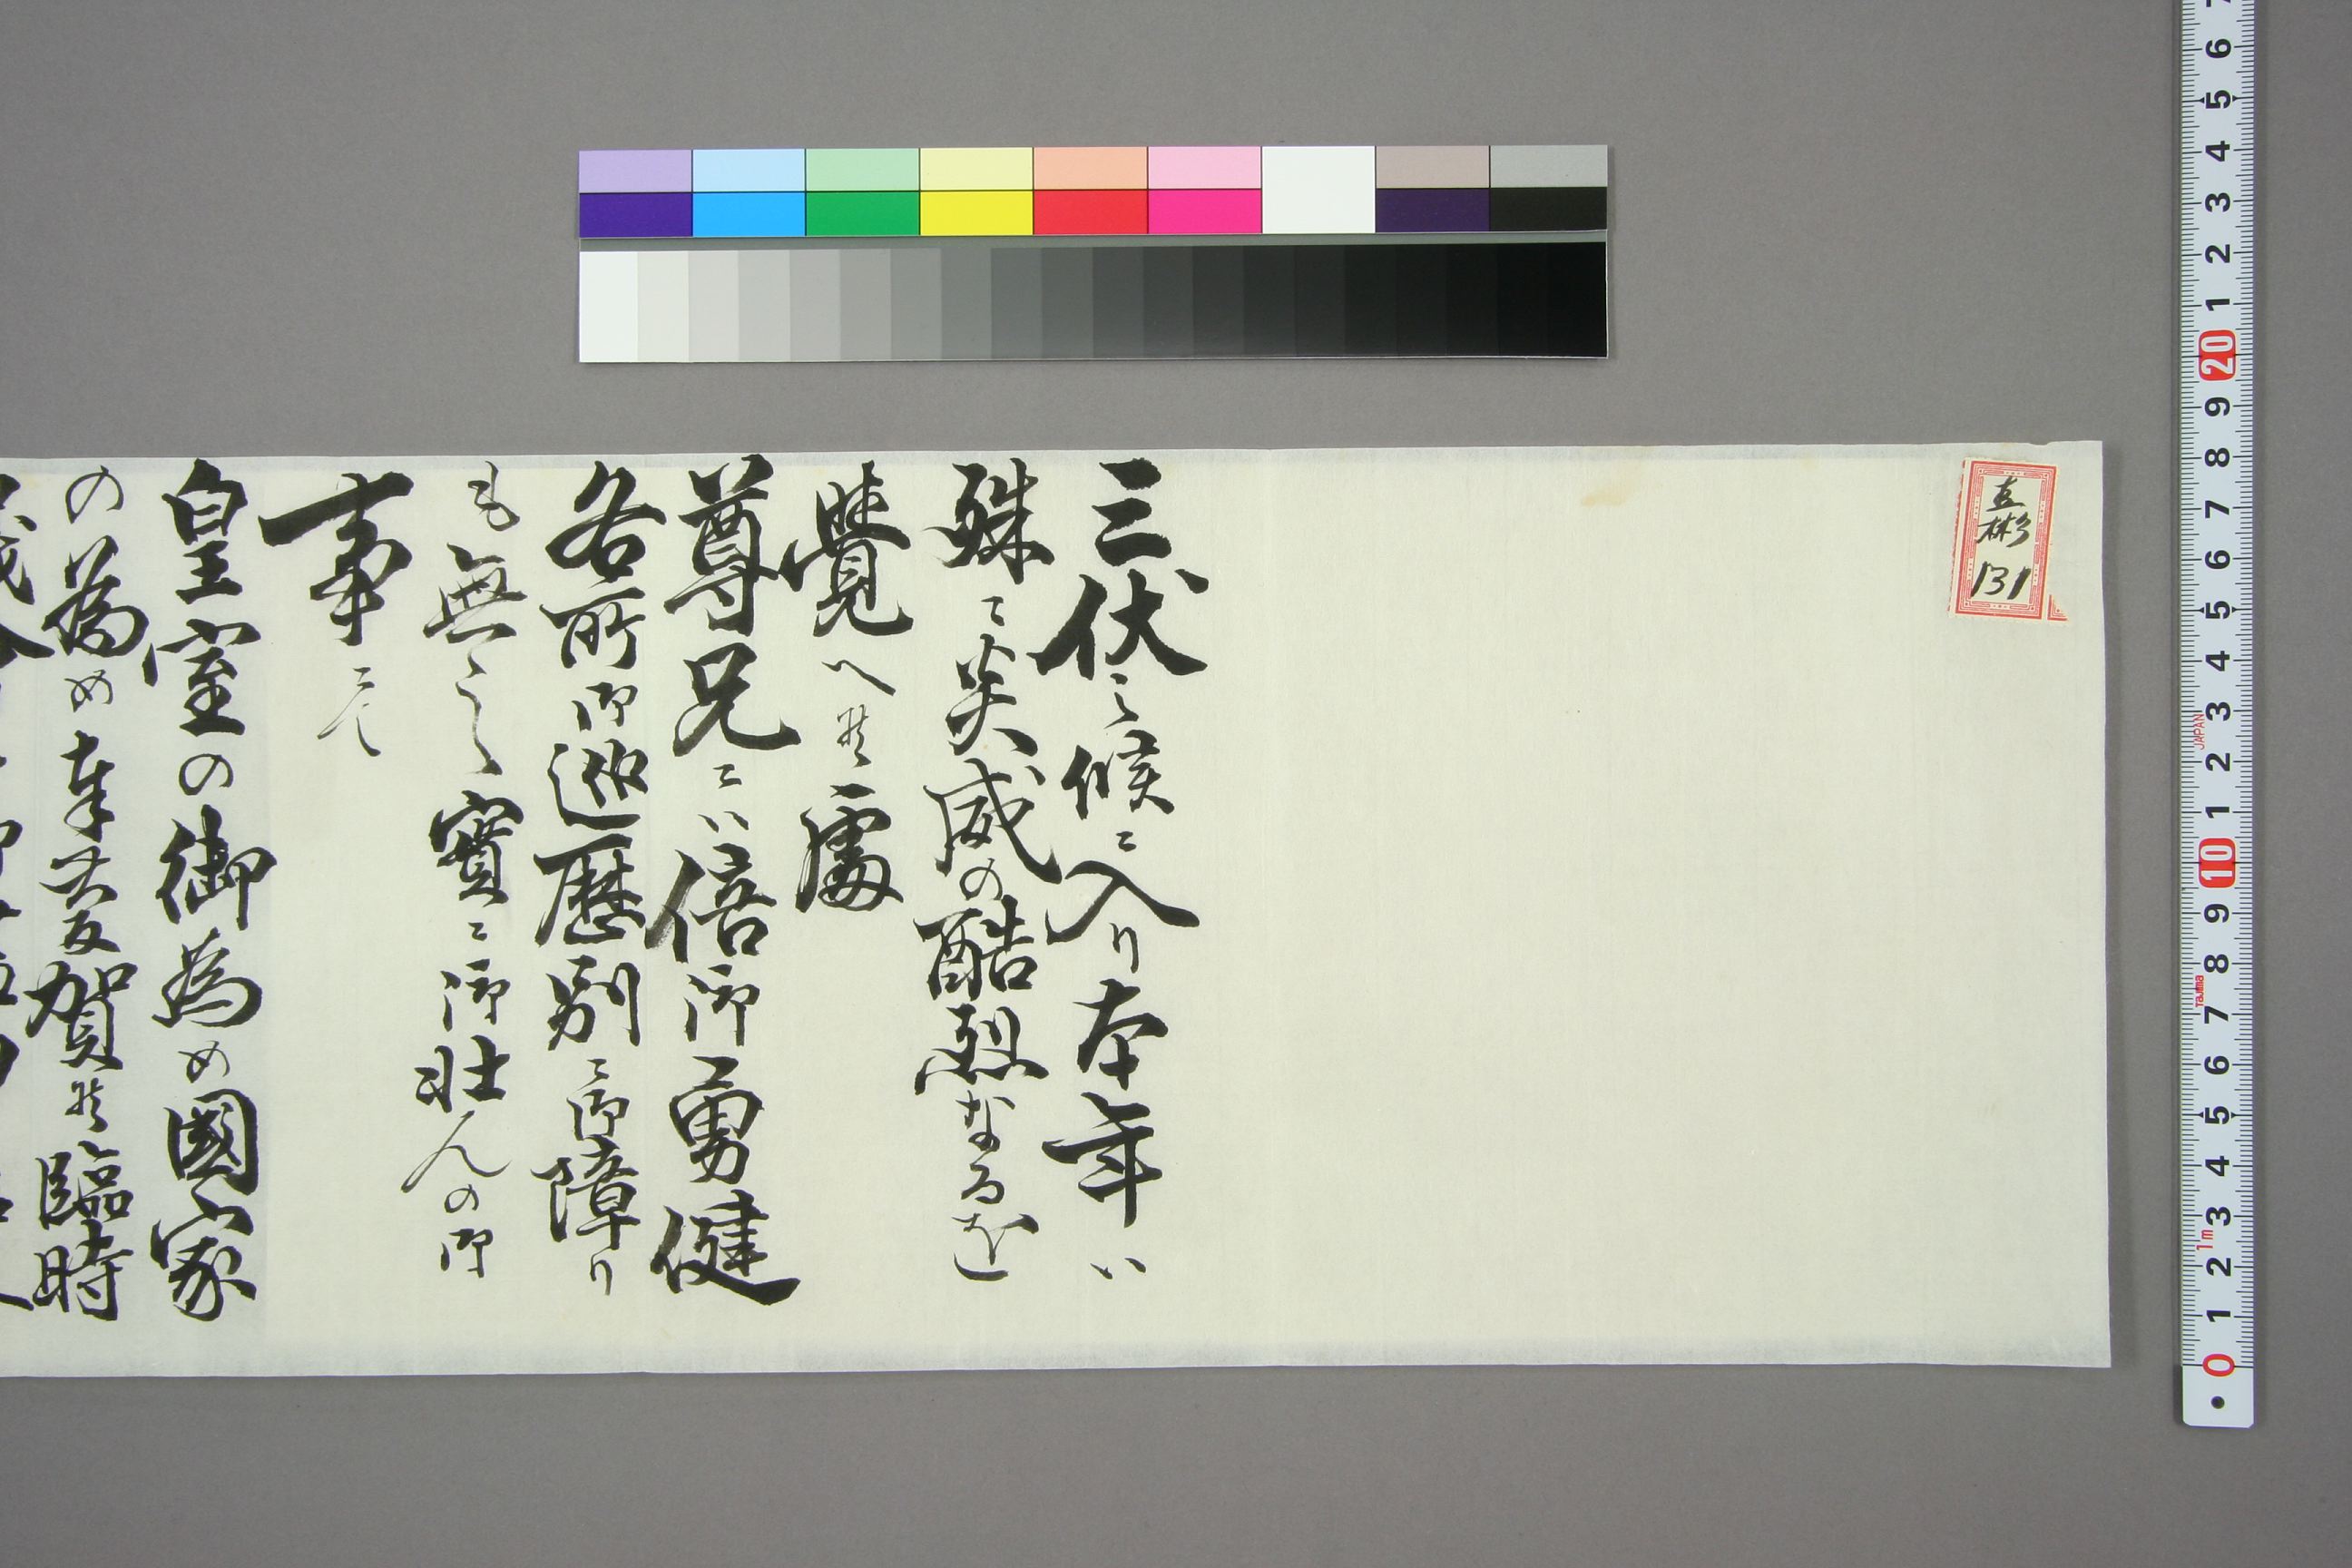 直彬
131
三伏之候ニ入り本年ハ
殊ニ炎威の酷烈なるを
覺へ候處
尊兄ニハ倍御勇健
各所御巡歴別ニ御障り
も無之實ニ御壮んの御
事ニて
皇室の御為め國家
の為め奉大慶賀候臨時
JAPAN
Tajima
1m
0 1 2 3 4 5 6 7 8 9 10 1 2 3 4 5 6 7 8 9 20 1 2 3 4 5 6 7